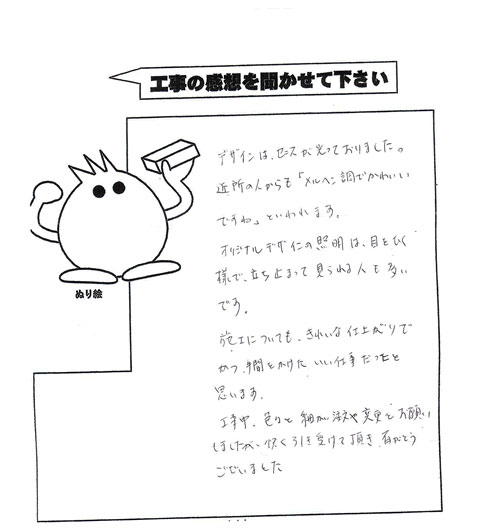 工事の感想を聞かせて下さい
デザインは、センスが光っておりました。
近所の人からも「メルヘン調でかわいい
ですね」といわれます。
オリジナルデザインの照明は、目をひく
様で、立ち止まって見られる人も多い
です。
施工についても、きれいな仕上がりで
かつ、手間をかけた いい仕事だったと
思います。
工事中、色々と細かい注文や変更をお願い
しましたが、快く引き受けて頂き 有がとう
ございました
ぬり絵